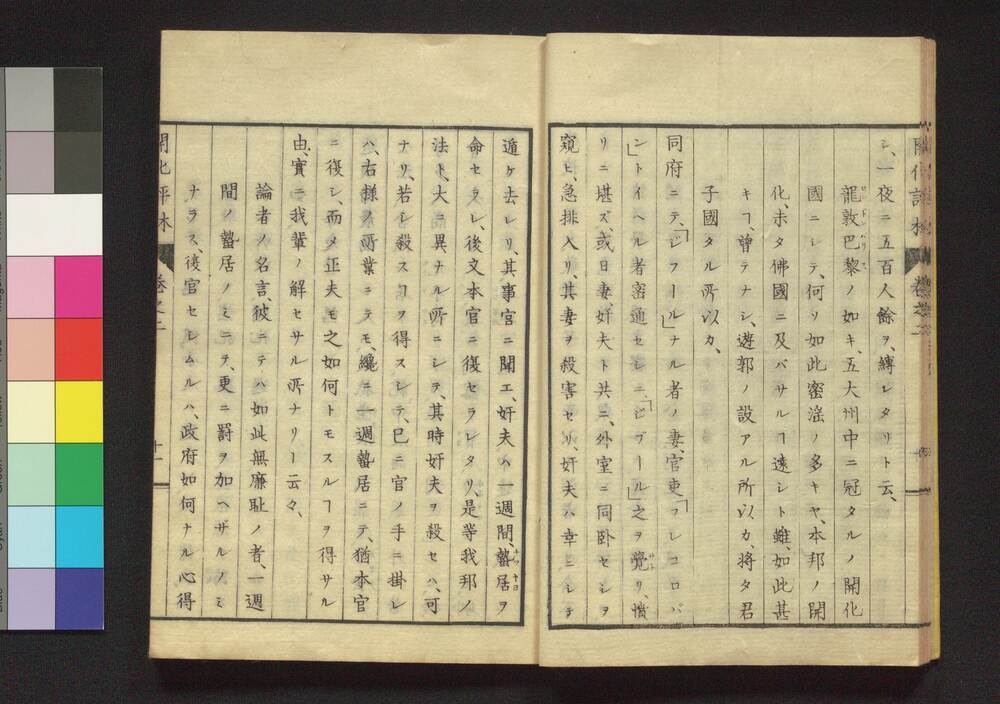 シ、一夜ニ五百人餘ヲ、縛レタリト云、
龍敦巴黎ノ如キ、五大州中ニ冠タルノ開化
國ニシテ、何ソ如此密淫ノ多キヤ、本邦ノ開
化、未タ佛國ニ及バサルヿ遠シト雖、如此甚
キヿ、曾テナシ、遊郭ノ設アル所以カ、將タ君
子國タル所以カ、
同府ニテ、「ジフール」ナル者ノ妻、官吏「フレコロバ
ン」トイヘル者密通セシニ、「ジブール」之ヲ覺リ、憤
リニ堪ズ、或日妻奸夫ト共ニ、外室ニ同卧セシヲ
窺ヒ、急排入リ、其妻ヲ殺害セリ、奸夫ハ幸ニシテ
遁ケ去レリ、其事官ニ聞エ、奸夫ハ一週間、蟄居ヲ
命セラレ、後文本官ニ復セラレタリ、是等我邦ノ
法ト、大ニ異ナル所ニシテ、其時奸夫ヲ殺セハ、可
ナリ、若シ殺スヿヲ得スシテ、已ニ官ノ手ニ掛レ
ハ、右様ノ所業ニテモ、纔ニ一週蟄居ニテ、猶本官
ニ復シ、而メ正夫モ之如何トモスルヿヲ得サル
由、實ニ我輩ノ解セサル所ナリー云々、
論者ノ名言、彼ニテハ如此無廉耻ノ者、一週
間ノ蟄居ノミニテ、更ニ罰ヲ加ヘザルノミ
ナラス、復官セシムルハ、政府如何ナル心得
開化評林 卷之二 十一